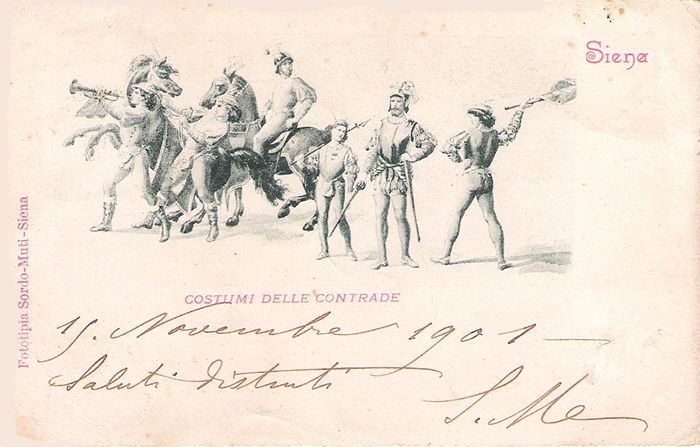 Siena
Fototipia Sordo-Muti-Siena
COSTUMI DELLE CONTRADE
15. Novembre 1901 —
Saluti distinti